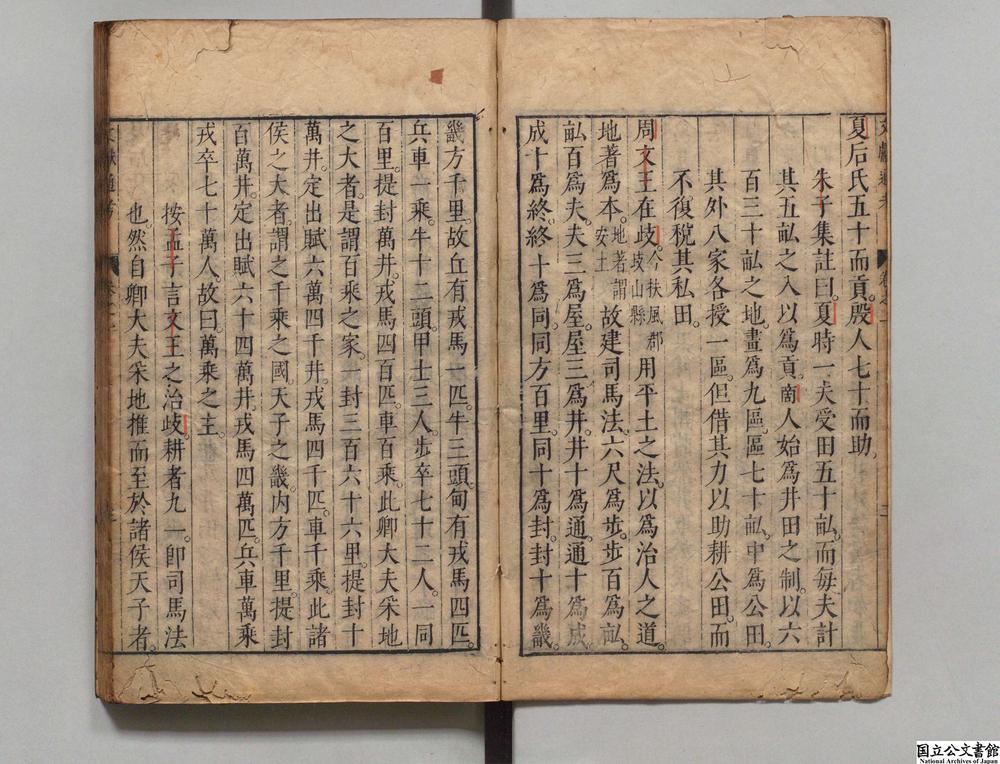 夏后氏五十而貢。殷人七十而助。
朱子集註曰。夏時一夫受田五十畝。而每夫計
其五畝之入以爲貢。商人始爲井田之制。以六
百三十畝之地。畫爲九區。區七十畝。中爲公田。
其外八家各授一區。但借其力以助耕公田。而
不復稅其私田。
周文王在歧。今扶風郡歧山縣用平土之法。以爲治人之道。
地著爲本。地著謂安土故建司馬法。六尺爲步。步百爲畝。
畝百爲夫。夫三爲屋。屋三爲井。井十爲通。通十爲成。
成十爲終。終十爲同。同方百里。同十爲封。封十爲畿。
畿方千里。故丘有戎馬一匹。牛三頭。甸有戎馬四匹。
兵車一乘。牛十二頭。甲士三人。步卒七十二人。一同
百里。提封萬井。戎馬四百匹。車百乘。此卿大夫采地
之大者。是謂百乘之家。一封三百六十六里。提封十
萬井。定出賦六萬四千井。戎馬四千匹。車千乘。此諸
侯之大者。謂之千乘之國。天子之畿內方千里。提封
百萬井。定出賦六十四萬井。戎馬四萬匹。兵車萬乘
戎卒七十萬人。故曰。萬乘之主。
按。孟子言文王之治歧。耕者九一。卽司馬法
也。然自卿大夫采地推而至於諸侯天子者。
国立公文書館
National Archives of Japan